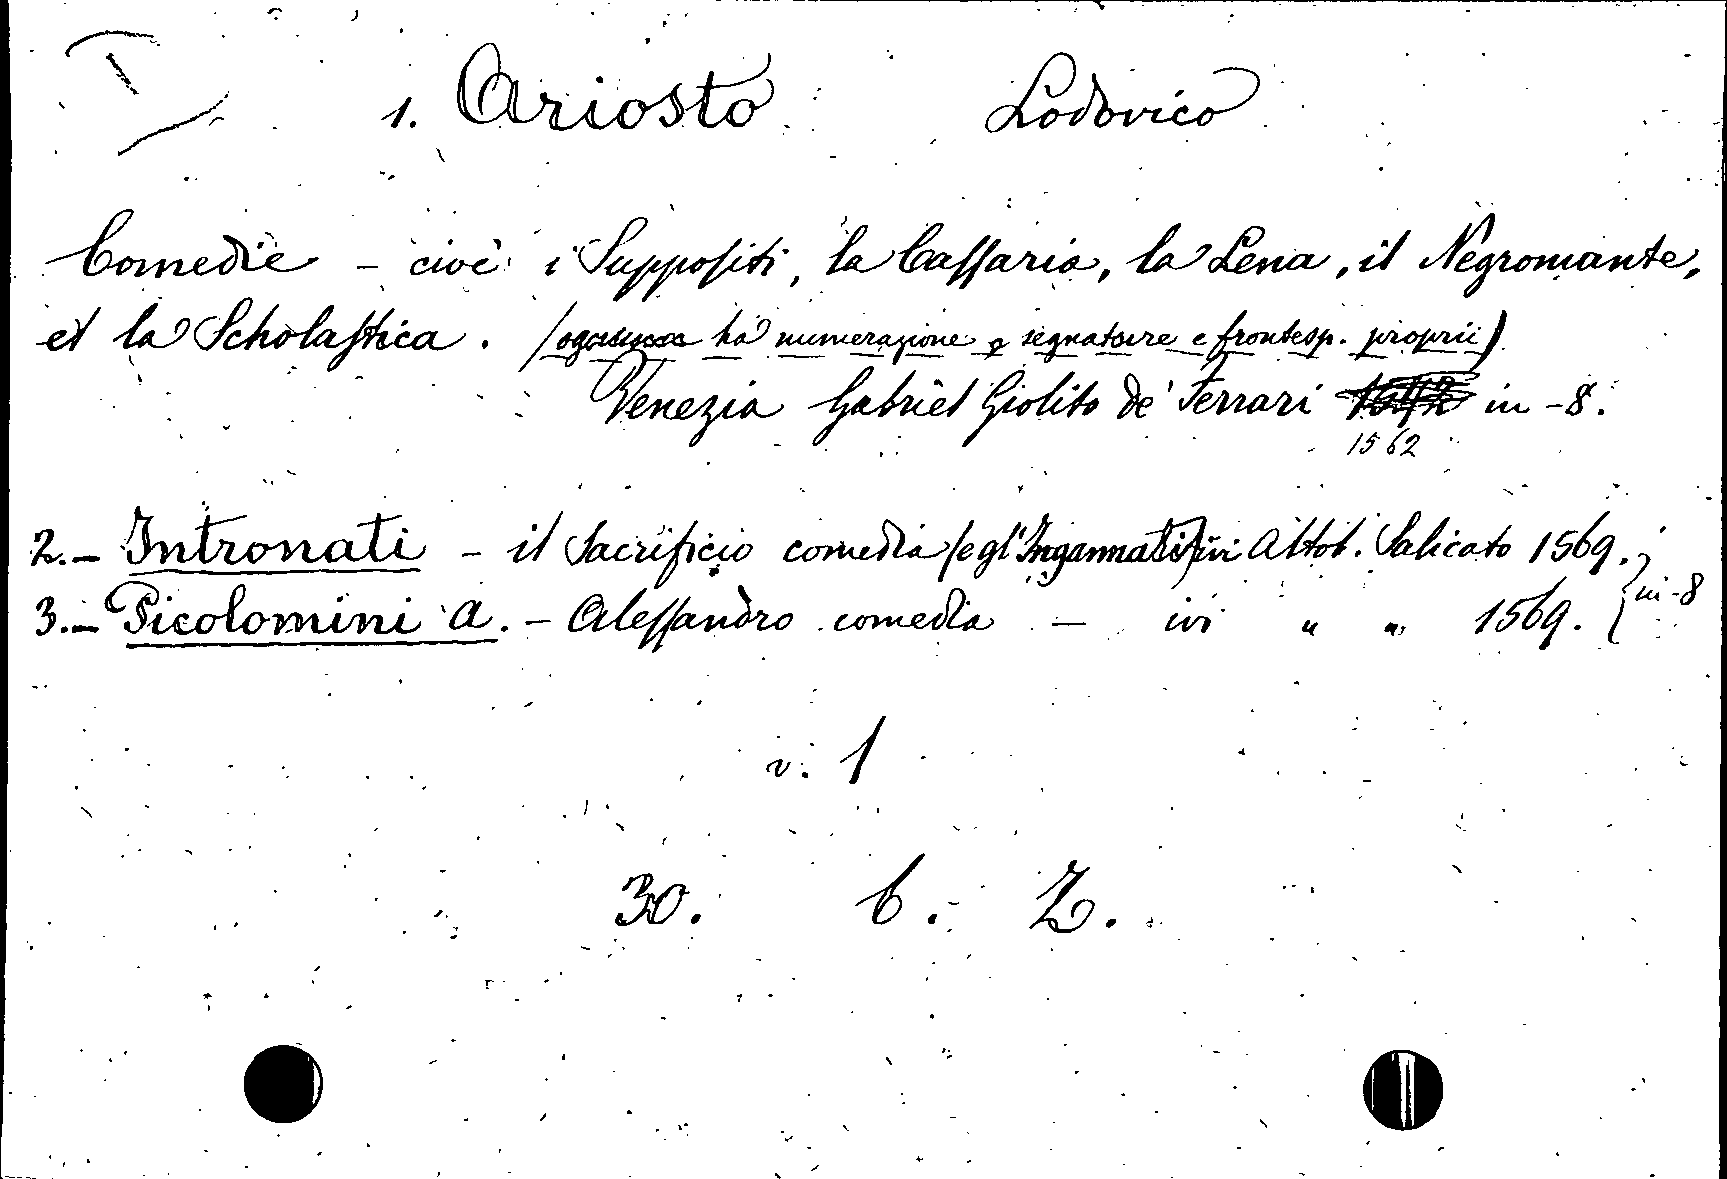 1. Ariosto Lodovico
Comedie - cioè i Suppositi, la Cassaria, la Lena, il Negromante,
et la Scholastica. (ognuna ha numerazione e segnature e frontesp. proprii)
Venezia Gabriel Giolito de' Ferrari in-8.
1562
2.- Intronati - il Sacrificio comedia (e gl'Ingannati) ivi Altob. Salicato 1569.
3.- Picolomini A. - Alessandro comedia - ivi " " 1569. } in-8
v. 1
30. b. Z.